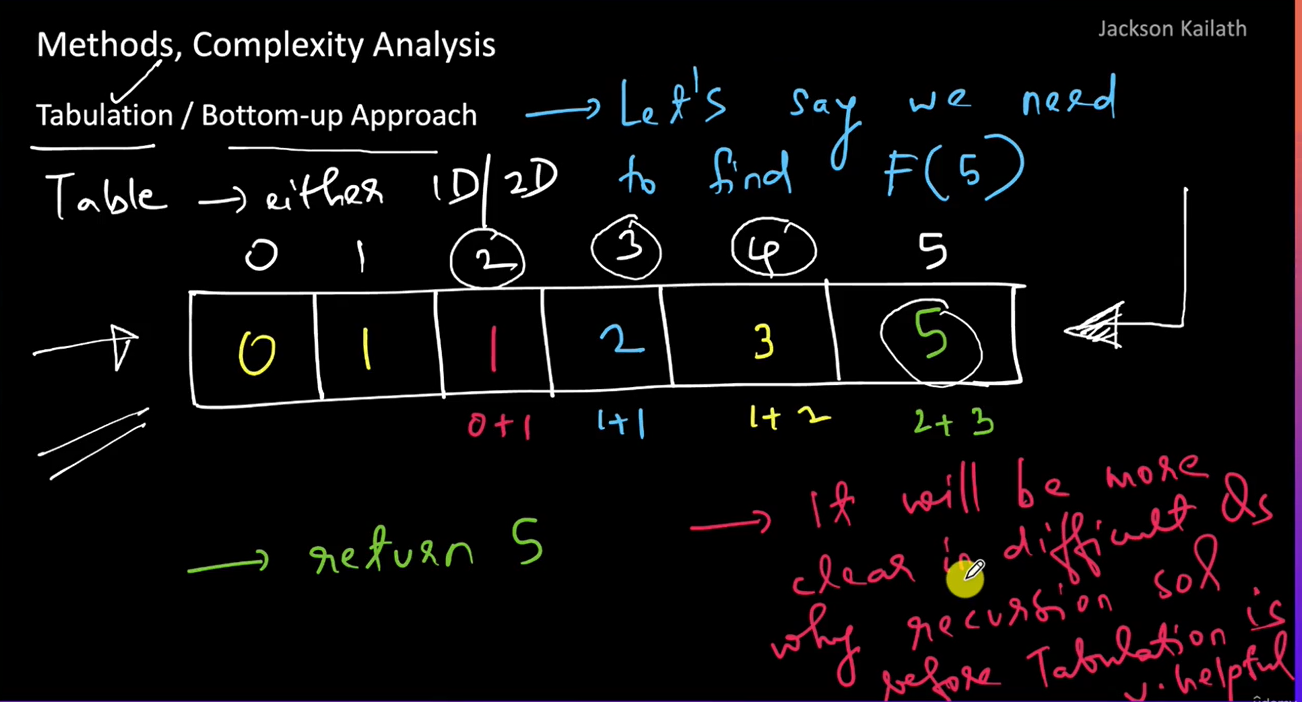 Methods, Complexity Analysis
Jackson Kailath
Tabulation / Bottom-up Approach
→ Let's say we need
to find F(5)
Table → either 1D/2D
0 1 2 3 4 5
0 1 1 2 3 5
0+1 1+1 1+2 2+3
→ return 5
→ It will be more
clear in difficult Qs
why recursion sol
before Tabulation is
v. helpful